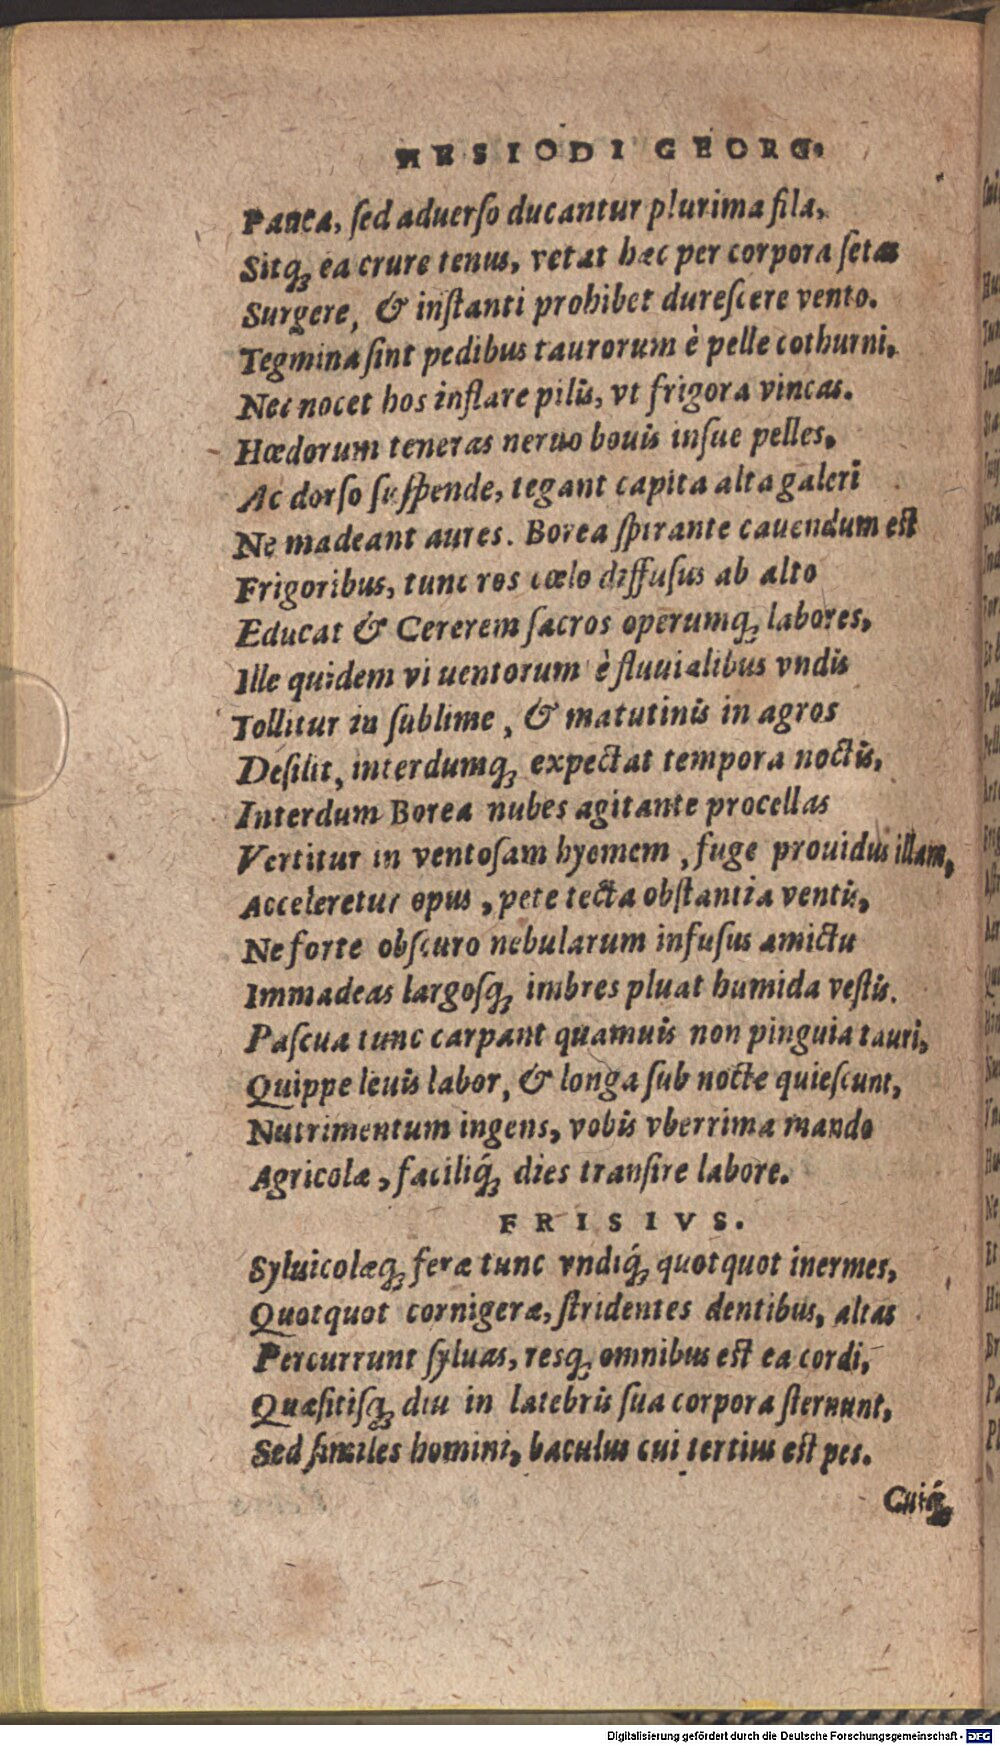 HESIODI GEORG.
Pauca, sed aduerso ducantur plurima fila,
Sitq; ea crure tenus, vetat hæc per corpora setas
Surgere, & instanti prohibet durescere vento.
Tegmina sint pedibus taurorum è pelle cothurni,
Nec nocet hos inflare pilis, vt frigora vincas.
Hœdorum teneras neruo bouis insue pelles,
Ac dorso suspende, tegant capita alta galeri
Ne madeant aures. Borea spirante cauendum est
Frigoribus, tunc ros cœlo diffusus ab alto
Educat & Cererem sacros operumq; labores,
Ille quidem vi uentorum è fluuialibus vndis
Tollitur in sublime, & matutinis in agros
Desilit, interdumq; expectat tempora noctis,
Interdum Borea nubes agitante procellas
Vertitur in ventosam hyemem, fuge prouidus illam,
Acceleretur opus, pete tecta obstantia ventis,
Ne forte obscuro nebularum infusus amictu
Immadeas largosq; imbres pluat humida vestis.
Pascua tunc carpant quamuis non pinguia tauri,
Quippe leuis labor, & longa sub nocte quiescunt,
Nutrimentum ingens, vobis vberrima mando
Agricolæ, faciliq́; dies transire labore.
FRISIVS.
Syluicolæq; feræ tunc vndiq́; quotquot inermes,
Quotquot cornigeræ, stridentes dentibus, altas
Percurrunt syluas, resq; omnibus est ea cordi,
Quæsitisq; diu in latebris sua corpora sternunt,
Sed similes homini, baculus cui tertius est pes.
Cuiq́;
Digitalisierung gefördert durch die Deutsche Forschungsgemeinschaft - DFG